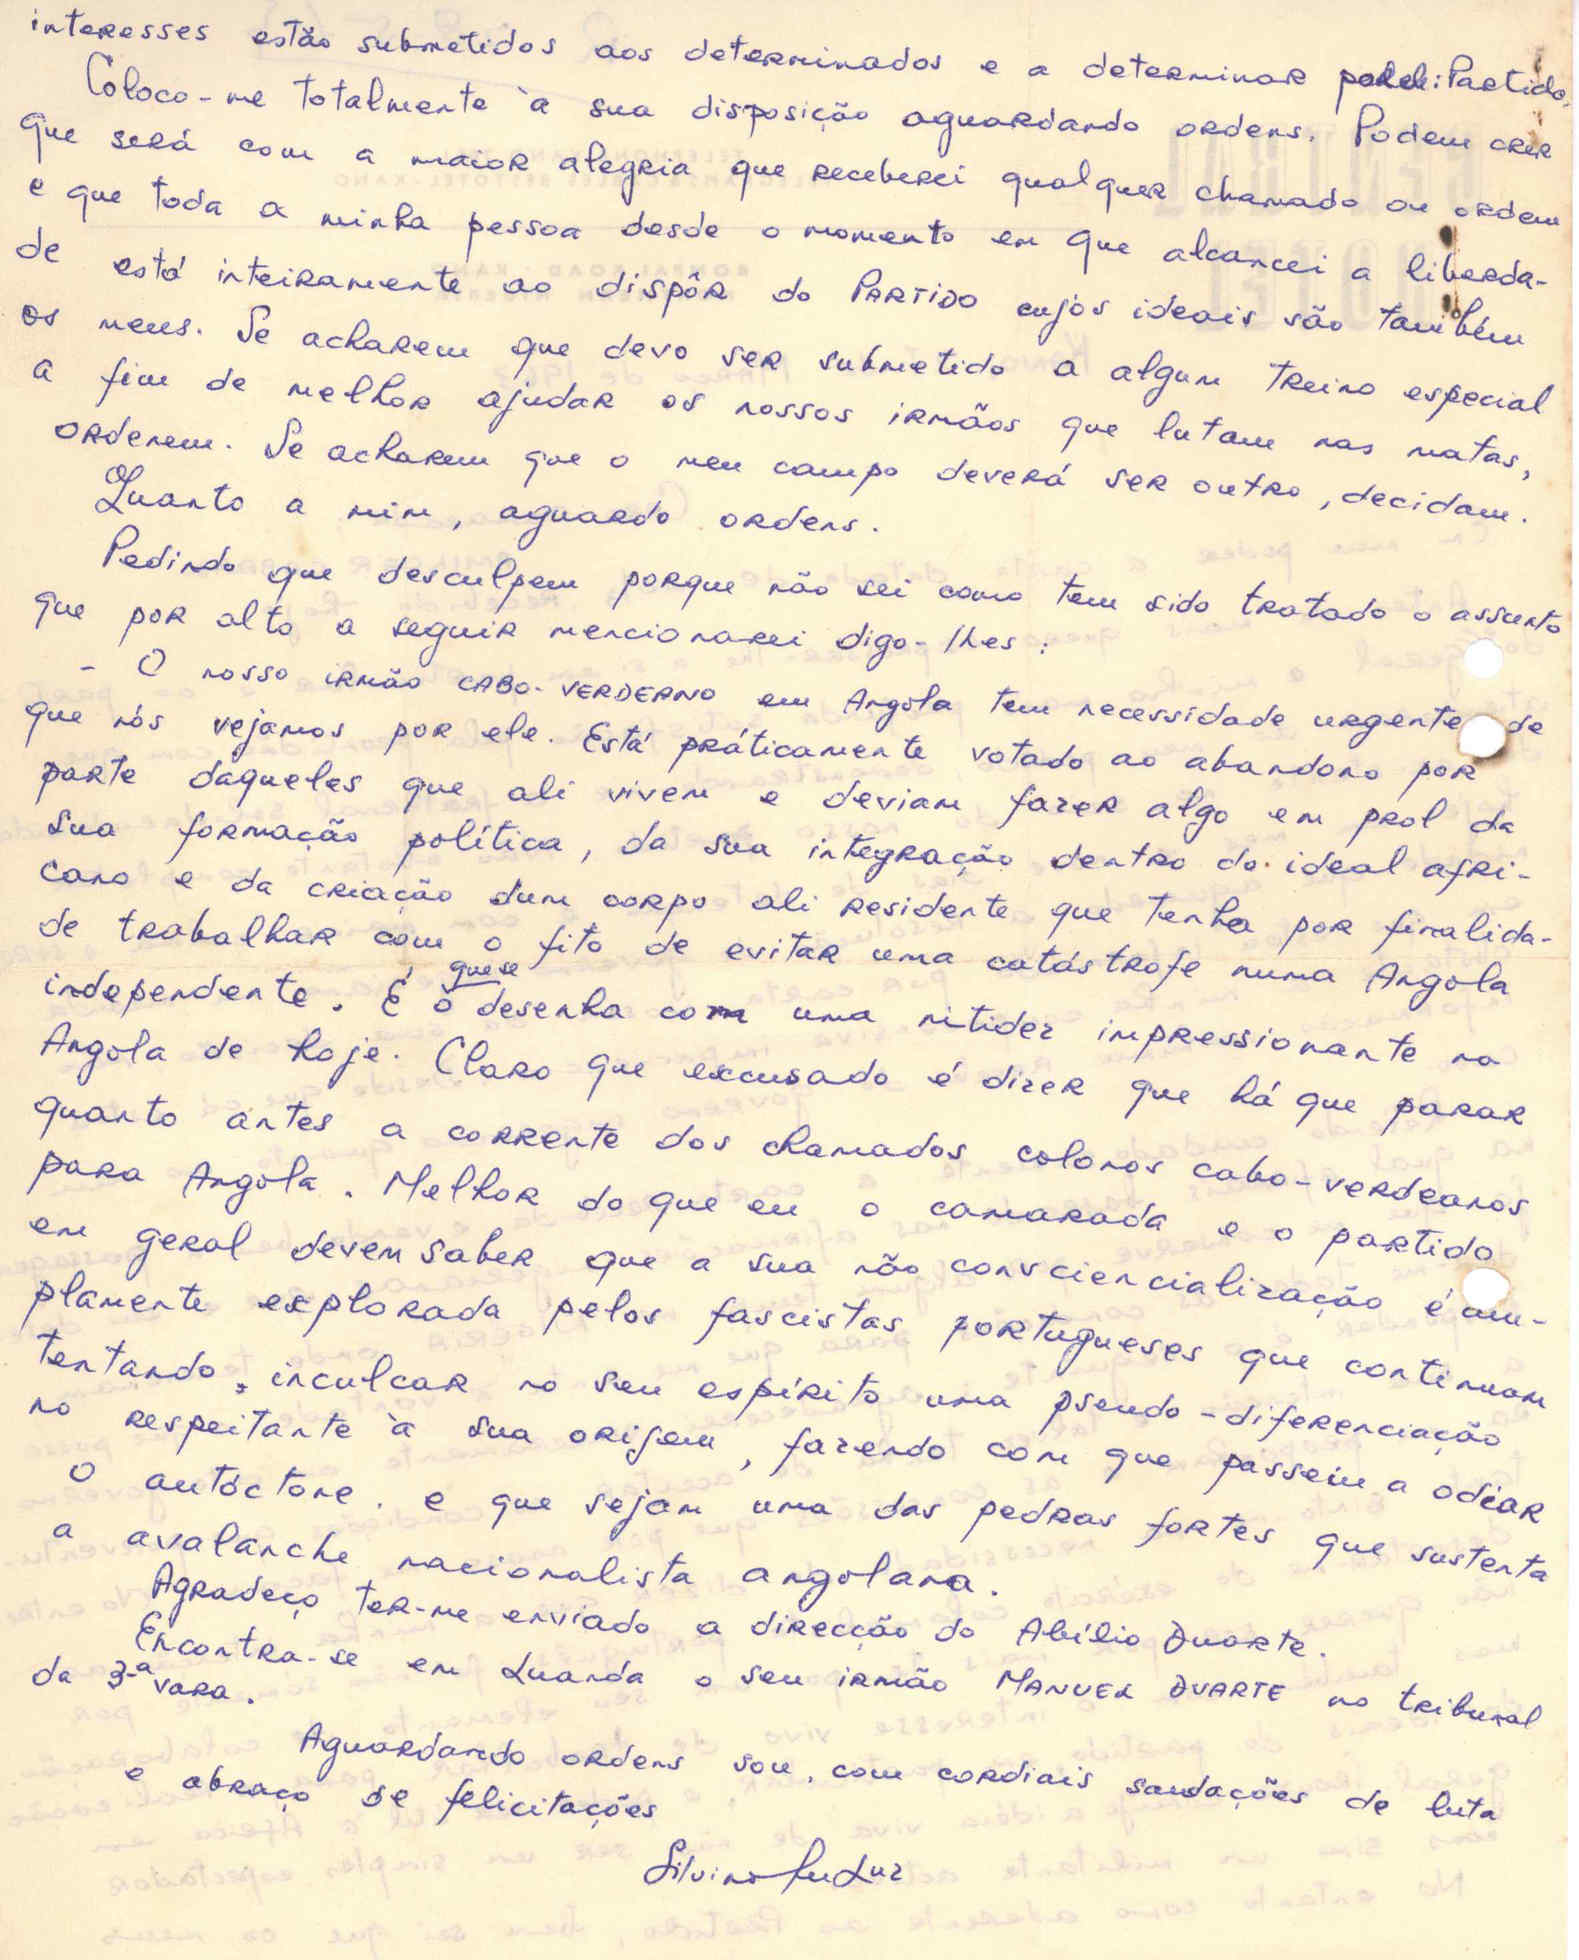 interesses estão submetidos aos determinados e a determinar pelo: Partido.
Coloco-me totalmente à sua disposição aguardando ordens. Podem crer
que será com a maior alegria que receberei qualquer chamado ou ordem
e que toda a minha pessoa desde o momento em que alcancei a liberda-
de está inteiramente ao dispôr do PARTIDO cujos ideais são também
os meus. Se acharem que devo ser submetido a algum treino especial
a fim de melhor ajudar os nossos irmãos que lutam nas matas,
ordenem. Se acharem que o meu campo deverá ser outro, decidam.
Quanto a mim, aguardo ordens.
Pedindo que desculpem porque não sei como tem sido tratado o assunto
que por alto a seguir mencionarei digo-lhes:
- O nosso irmão CABO-VERDERNO em Angola tem necessidade urgente de
que nós vejamos por ele. Está práticamente votado ao abandono por
parte daqueles que ali vivem e deviam fazer algo em prol da
sua formação política, da sua integração dentro do ideal afri-
cano e da criação dum corpo ali residente que tenha por finalida-
de trabalhar com o fito de evitar uma catástrofe numa Angola
independente. É o que se desenha com uma nitidez impressionante na
Angola de hoje. Claro que excusado é dizer que há que parar
quanto antes a corrente dos chamados colonos cabo-verdeanos
para Angola. Melhor do que eu o camarada e o partido
em geral devem saber que a sua não consciencialização é am-
plamente explorada pelos fascistas portugueses que continuam
tentando inculcar no seu espírito uma pseudo-diferenciação
no respeitante à sua origem, fazendo com que passem a odiar
o autóctone. e que sejam uma das pedras fortes que sustenta
a avalanche nacionalista angolana.
Agradeço ter-me enviado a direcção do Abílio Duarte.
Encontra-se em Luanda o seu irmão MANUEL DUARTE no tribunal
da 3ª vara.
Aguardando ordens sou, com cordiais saudações de luta
e abraço de felicitações
Silvino da Luz